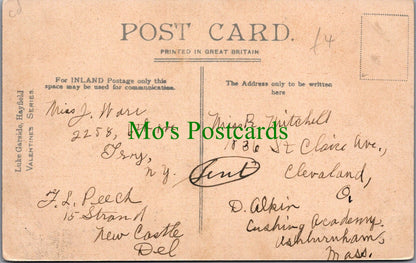 POST CARD.
PRINTED IN GREAT BRITAIN
£4
For INLAND Postage only this
space may be used for communication.
The Address only to be written
here
Luke Garside, Hayfield
VALENTINES SERIES.
Miss J. Warr
2258,
Troy,
N.Y.
(Sent)
F. L. Peech
15 Strand
New Castle
Del
Miss B. Mitchell
1836 St Claire Ave.,
Cleveland,
O,
D. Alkin
Cushing Academy
Ashburnham,
Mass.
Mo's Postcards